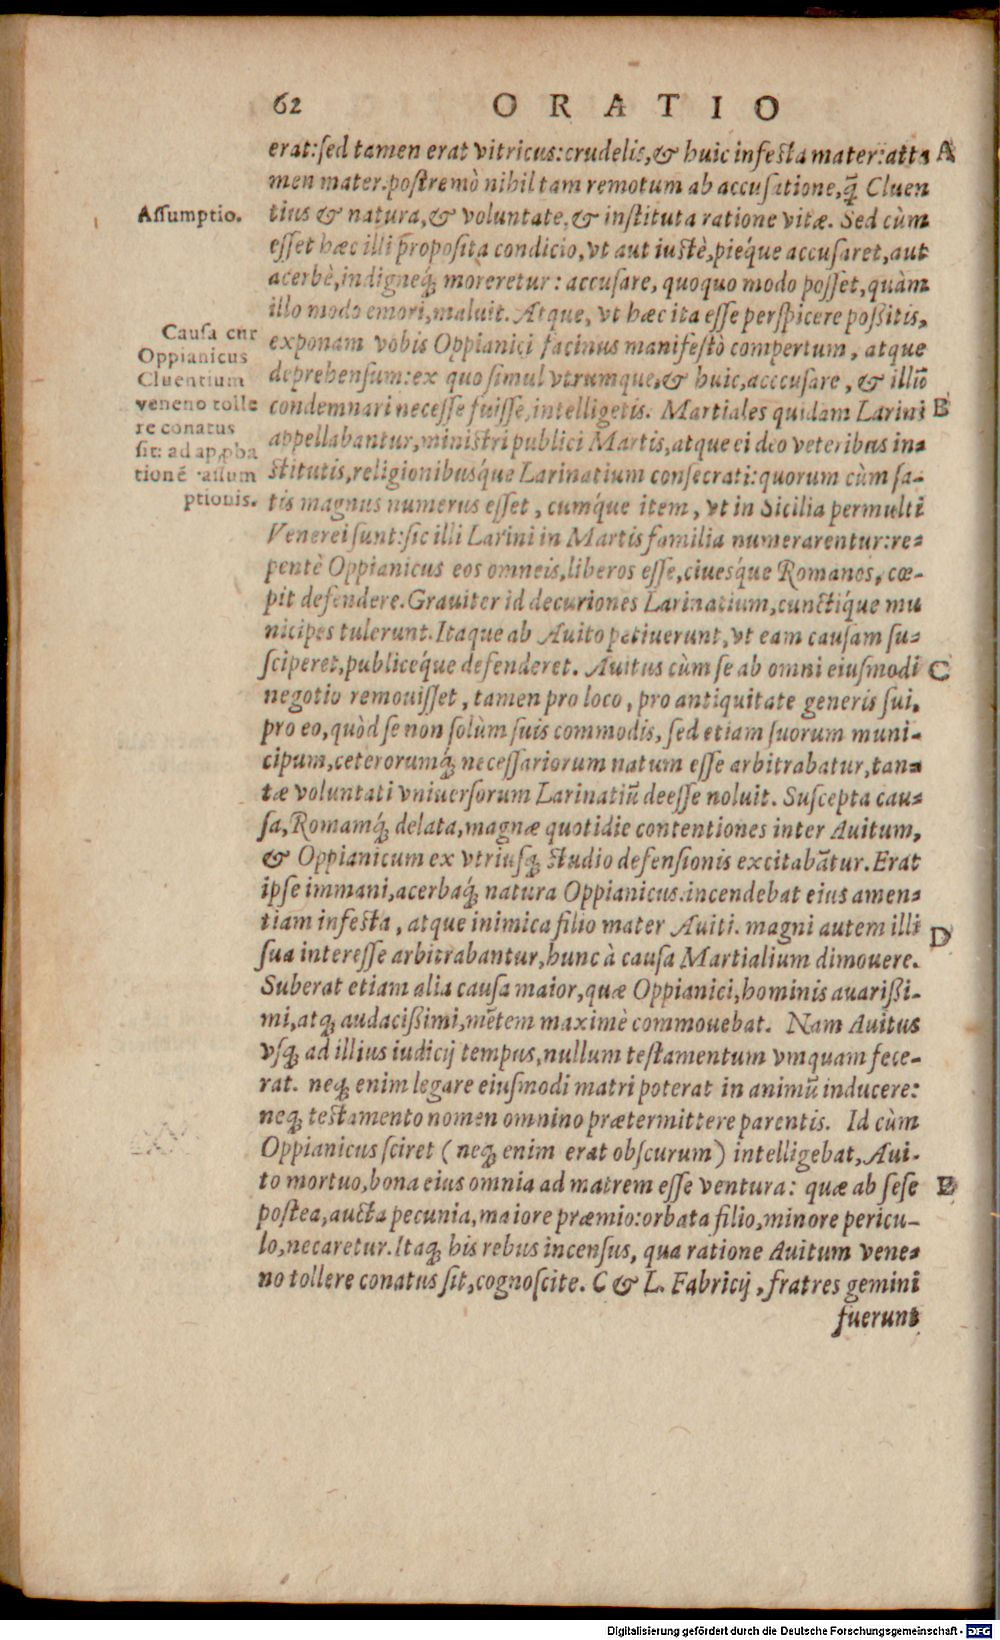 62 ORATIO
erat:ſed tamen erat vitricus:crudelis,& huic infeſta mater:atta A
men mater.poſtremò nihil tam remotum ab accuſatione,q̃ Cluen
Aſſumptio.
tius & natura,& voluntate,& inſtituta ratione vitæ. Sed cùm
eſſet hæc illi propoſita condicio,vt aut iuſtè,pieq́ue accuſaret,aut
acerbè,indigneq́; moreretur: accuſare, quoquo modo poſſet,quàm
illo modo emori,maluit. Atque, vt hæc ita eſſe perſpicere poßitis,
Cauſa cur
Oppianicus
Cluentium
veneno tolle
re conatus
ſit: ad apꝓba
tionẽ aſſum
ptionis.
exponam vobis Oppianici facinus manifeſtò compertum, atque
deprehenſum:ex quo ſimul vtrumque,& huic,acccuſare, & illiũ
condemnari neceſſe fuiſſe,intelligetis. Martiales quidam Larini B
appellabantur,miniſtri publici Martis,atque ei deo veteribus in-
ſtitutis,religionibusq́ue Larinatium conſecrati:quorum cùm ſa-
tis magnus numerus eſſet, cumq́ue item, vt in Sicilia permulti
Venerei ſunt:ſic illi Larini in Martis familia numerarentur:re-
pentè Oppianicus eos omneis,liberos eſſe,ciuesq́ue Romanos, cœ-
pit defendere.Grauiter id decuriones Larinatium,cunctiq́ue mu
nicipes tulerunt.Itaque ab Auito petiuerunt,vt eam cauſam ſu-
ſciperet,publiceq́ue defenderet. Auitus cùm ſe ab omni eiuſmodi C
negotio remouiſſet, tamen pro loco, pro antiquitate generis ſui,
pro eo,quòd ſe non ſolùm ſuis commodis, ſed etiam ſuorum muni-
cipum,ceterorumq́; neceſſariorum natum eſſe arbitrabatur,tan-
tæ voluntati vniuerſorum Larinatiũ deeſſe noluit. Suſcepta cau-
ſa,Romamq́; delata,magnæ quotidie contentiones inter Auitum,
& Oppianicum ex vtriuſq; ſtudio defenſionis excitabãtur.Erat
ipſe immani,acerbaq́; natura Oppianicus.incendebat eius amen-
tiam infeſta, atque inimica filio mater Auiti. magni autem illi D
ſua intereſſe arbitrabantur,hunc à cauſa Martialium dimouere.
Suberat etiam alia cauſa maior,quæ Oppianici,hominis auarißi-
mi,atq; audacißimi,mẽtem maximè commouebat. Nam Auitus
vſq; ad illius iudicij tempus,nullum teſtamentum vmquam fece-
rat. neq; enim legare eiuſmodi matri poterat in animũ inducere:
neq; teſtamento nomen omnino prætermittere parentis. Id cùm
Oppianicus ſciret ( neq; enim erat obſcurum) intelligebat,Aui-
to mortuo,bona eius omnia ad matrem eſſe ventura: quæ ab ſeſe E
poſtea,aucta pecunia,maiore præmio:orbata filio,minore pericu-
lo,necaretur.Itaq; his rebus incenſus, qua ratione Auitum vene-
no tollere conatus ſit,cognoſcite. C & L. Fabricij, fratres gemini
fuerunt
Digitalisierung gefördert durch die Deutsche Forschungsgemeinschaft - DFG